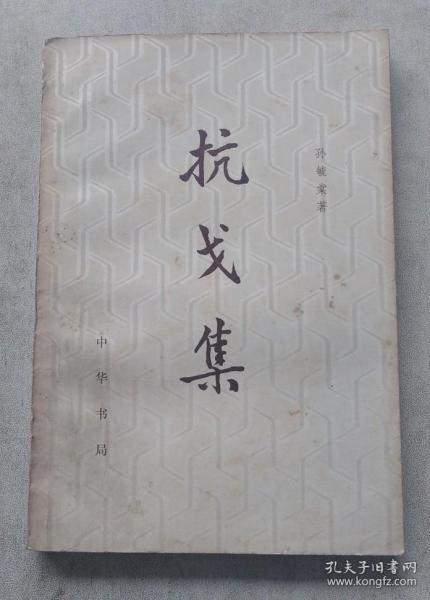 抗戈集
孙毓棠著
中华书局
孔夫子旧书网
www.kongfz.com